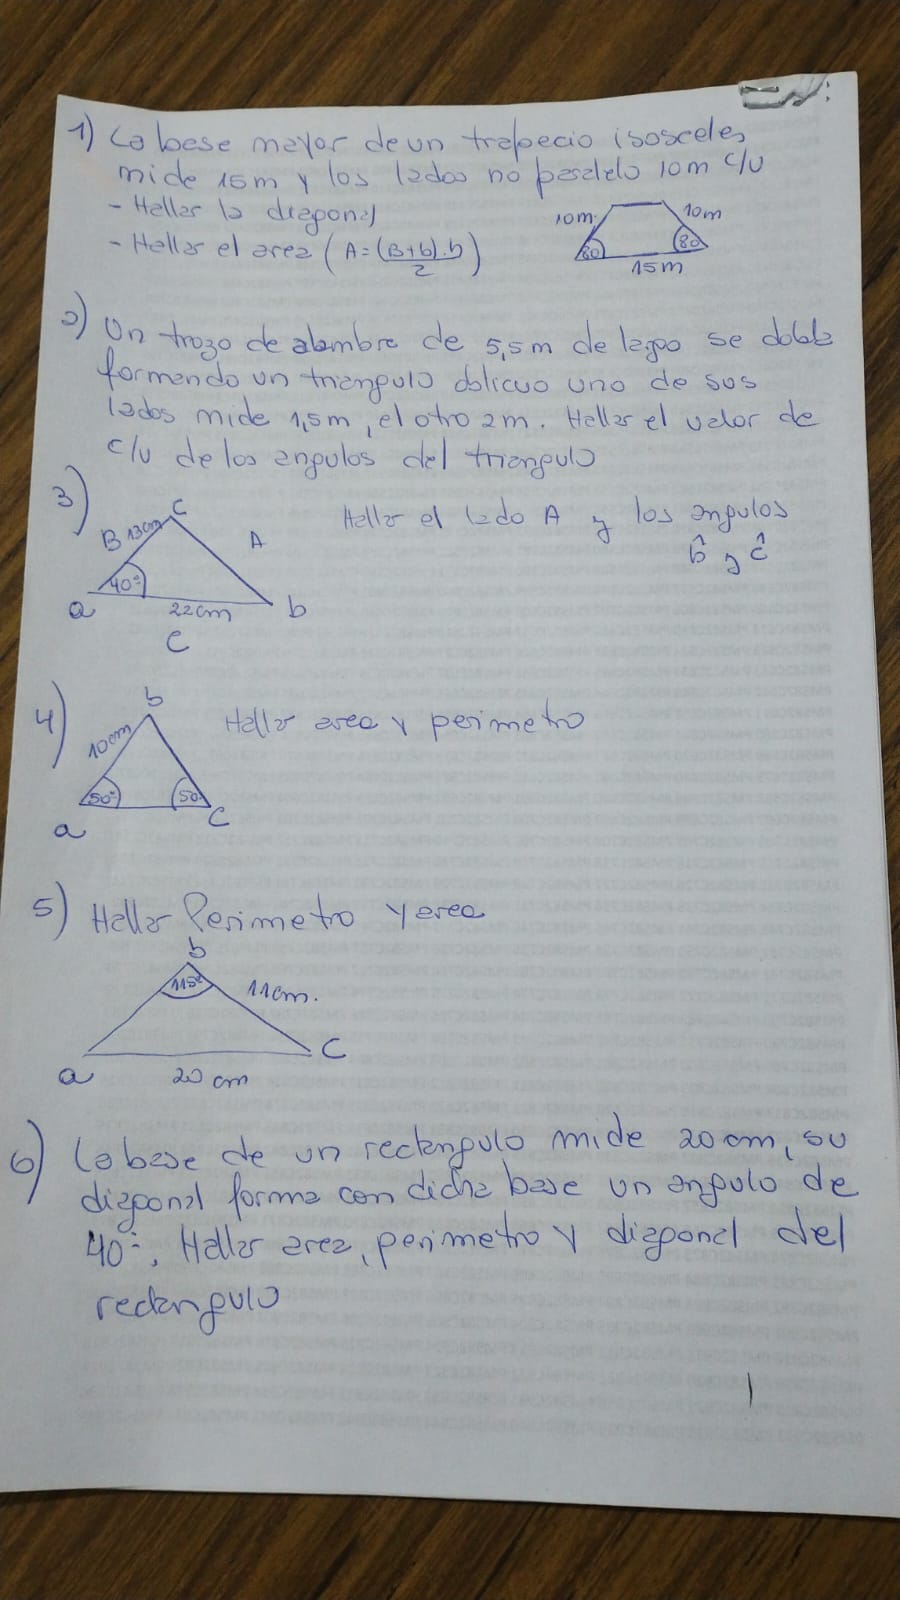 1) La base mayor de un trapecio isosceles
mide 15m y los lados no paralelo 10m c/u
- Hallar la diagonal
- Hallar el area (A=(B+b).h/2)
10m. 10m
80 80
15m
2) Un trozo de alambre de 5,5m de largo se dobla
formando un triangulo oblicuo uno de sus
lados mide 1,5m, el otro 2m. Hallar el valor de
c/u de los angulos del triangulo
3) Hallar el lado A y los angulos
b̂ y ĉ
c
B 13cm A
40°
a 22cm b
C
4) Hallar area y perimetro
b
10cm
50° 50°
a c
5) Hallar Perimetro y area
b
115° 11cm.
a 20 cm c
6) La base de un rectangulo mide 20 cm, su
diagonal forma con dicha base un angulo de
40°. Hallar area, perimetro y diagonal del
rectangulo